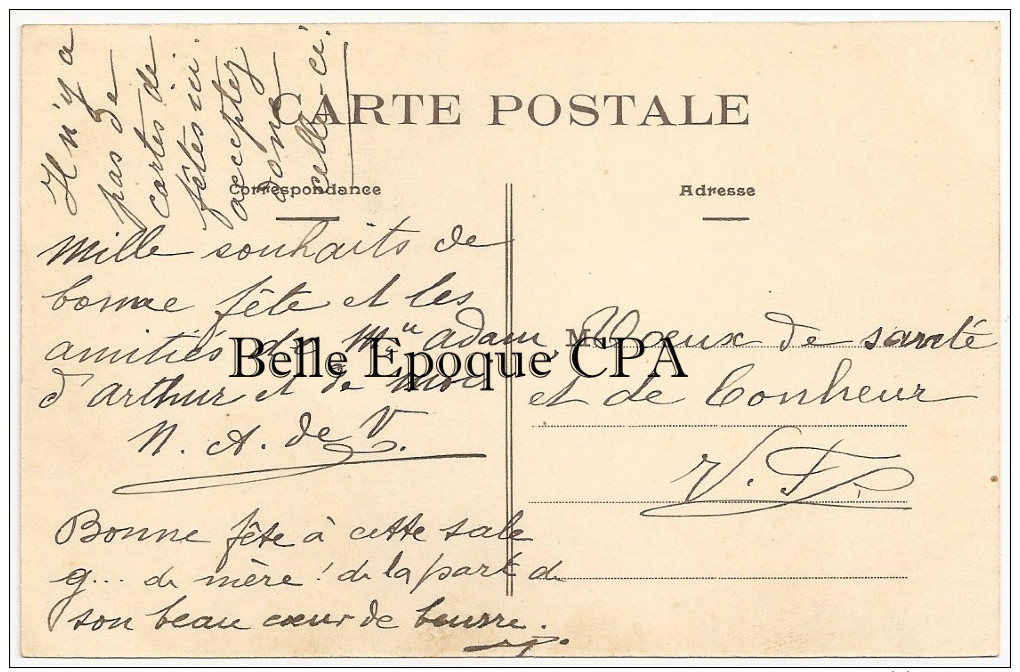 Il n'y a
pas de
cartes de
fêtes ici
acceptez
donc
celle-ci.
CARTE POSTALE
Correspondance
Adresse
Mille souhaits de
bonne fête et les
amitiés de Mlle Adam,
d'Arthur et de moi
N. A. de V.
Bonne fête à cette sale
g... de mère! de la part de
son beau cœur de beurre.
M
Voeux de santé
et de bonheur
V. F.
Belle Epoque CPA